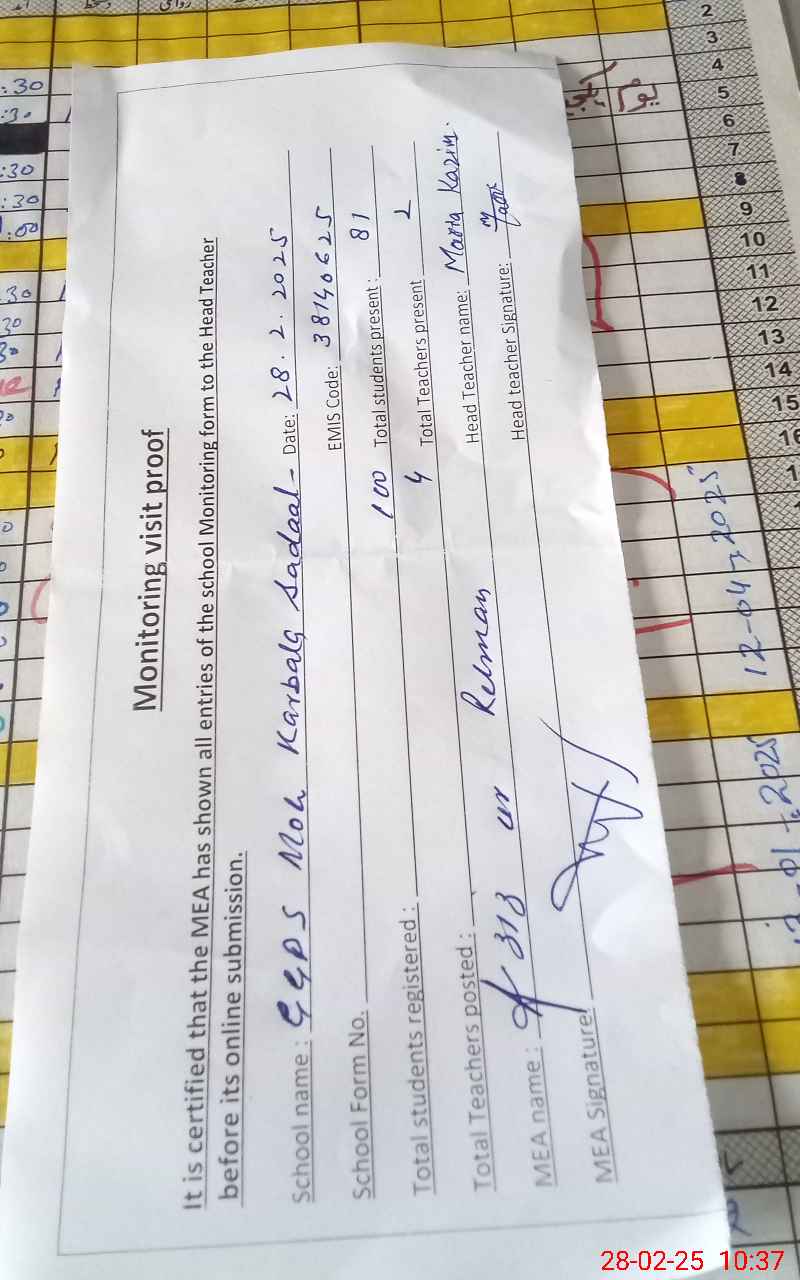 Monitoring visit proof
It is certified that the MEA has shown all entries of the school Monitoring form to the Head Teacher
before its online submission.
School name : GGPS Moh Karbala Sadaat - Date: 28.2.2025
School Form No. EMIS Code: 38140625
Total students registered : 100 Total students present : 81
Total Teachers posted : 4 Total Teachers present 2
MEA name : ur Rehman Head Teacher name: Kazim.
MEA Signature: Head teacher Signature:
2
3
4
5
6
7
8
9
10
11
12
13
14
15
16
12-04-2025
28-02-25 10:37